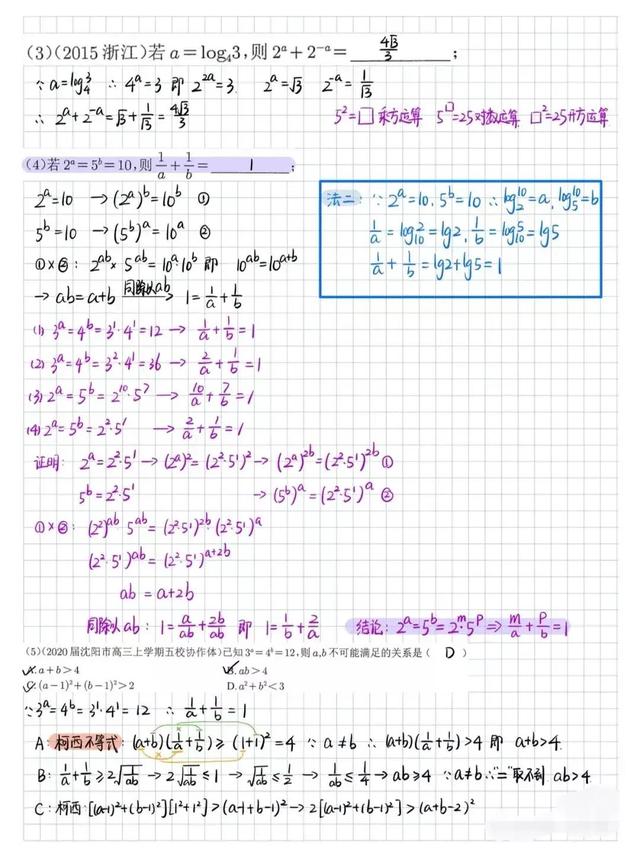 (3)(2015 浙江)若 a=log₄3,则 2ᵃ+2⁻ᵃ= 4√3/3 ;
∵ a=log₄3 ∴ 4ᵃ=3 即 2²ᵃ=3. 2ᵃ=√3 2⁻ᵃ=1/√3
∴ 2ᵃ+2⁻ᵃ=√3+1/√3=4√3/3
5²=□ 乘方运算 5^□=25对数运算 □²=25开方运算
(4)若 2ᵃ=5ᵇ=10,则 1/a+1/b= 1 ;
2ᵃ=10 → (2ᵃ)ᵇ=10ᵇ ①
5ᵇ=10 → (5ᵇ)ᵃ=10ᵃ ②
①×②: 2ᵃᵇ× 5ᵃᵇ=10ᵃ·10ᵇ 即 10ᵃᵇ=10ᵃ⁺ᵇ
→ ab=a+b 同除以ab→ 1=1/a+1/b
法二: ∵ 2ᵃ=10, 5ᵇ=10 ∴ log₂10=a, log₅10=b
1/a=log₁₀2=lg2, 1/b=log₁₀5=lg5
1/a+1/b=lg2+lg5=1
(1) 3ᵃ=4ᵇ=3¹·4¹=12 → 1/a+1/b=1
(2) 3ᵃ=4ᵇ=3²·4¹=36 → 2/a+1/b=1
(3) 2ᵃ=5ᵇ=2¹⁰·5⁷ → 10/a+7/b=1
(4) 2ᵃ=5ᵇ=2²·5¹ → 2/a+1/b=1
证明: 2ᵃ=2²·5¹ → (2ᵃ)²=(2²·5¹)² → (2ᵃ)²ᵇ=(2²·5¹)²ᵇ ①
5ᵇ=2²·5¹ → (5ᵇ)ᵃ=(2²·5¹)ᵃ ②
①×②: (2²)ᵃᵇ 5ᵃᵇ=(2²·5¹)²ᵇ·(2²·5¹)ᵃ
(2²·5¹)ᵃᵇ=(2²·5¹)ᵃ⁺²ᵇ
ab=a+2b
同除以ab: 1=a/ab+2b/ab 即 1=1/b+2/a
结论: 2ᵃ=5ᵇ=2ᵐ·5ᵖ ⇒ m/a+p/b=1
(5)(2020届沈阳市高三上学期五校协作体)已知3ᵃ=4ᵇ=12,则a,b不可能满足的关系是( D )
A. a+b>4 B. ab>4
C. (a-1)²+(b-1)²>2 D. a²+b²<3
∵3ᵃ=4ᵇ=3¹·4¹=12 ∴ 1/a+1/b=1
A: 柯西不等式: (a+b)(1/a+1/b)≥(1+1)²=4 ∵ a≠b ∴ (a+b)(1/a+1/b)>4 即 a+b>4.
B: 1/a+1/b≥2√(1/ab) → 2√(1/ab)≤1 → √(1/ab)≤1/2 → 1/ab≤1/4 → ab≥4 ∵a≠b ∴"="取不到 ab>4
C: 柯西: [(a-1)²+(b-1)²][1²+1²]>(a-1+b-1)² → 2[(a-1)²+(b-1)²]>(a+b-2)²